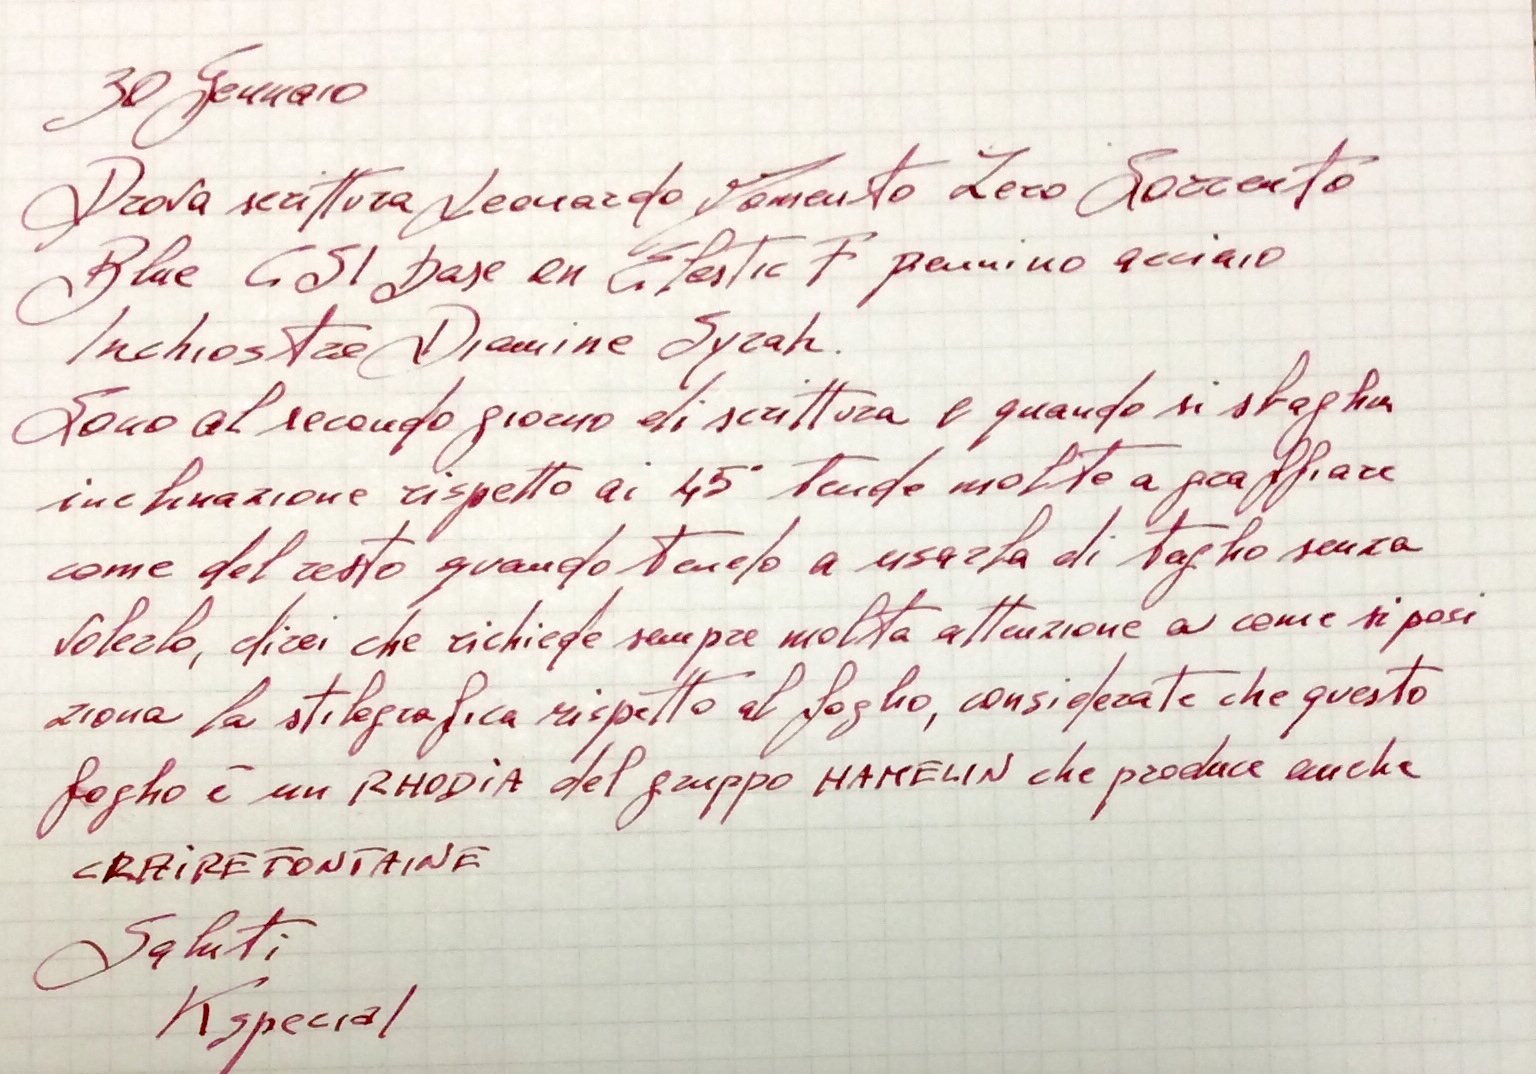 30 Gennaio
Prova scrittura Leonardo Momento Zero Sorrento
Blue GSI Base en Elastic F pennino acciaio
Inchiostro Diamine Syrah.
Sono al secondo giorno di scrittura e quando si sbaglia
inclinazione rispetto ai 45° tende molto a graffiare
come del resto quando tendo a usarla di taglio senza
volerlo, direi che richiede sempre molta attenzione a come si posi
ziona la stilografica rispetto al foglio, considerate che questo
foglio è un RHODIA del gruppo HAMELIN che produce anche
CRAIREFONTAINE
Saluti
Kspecial